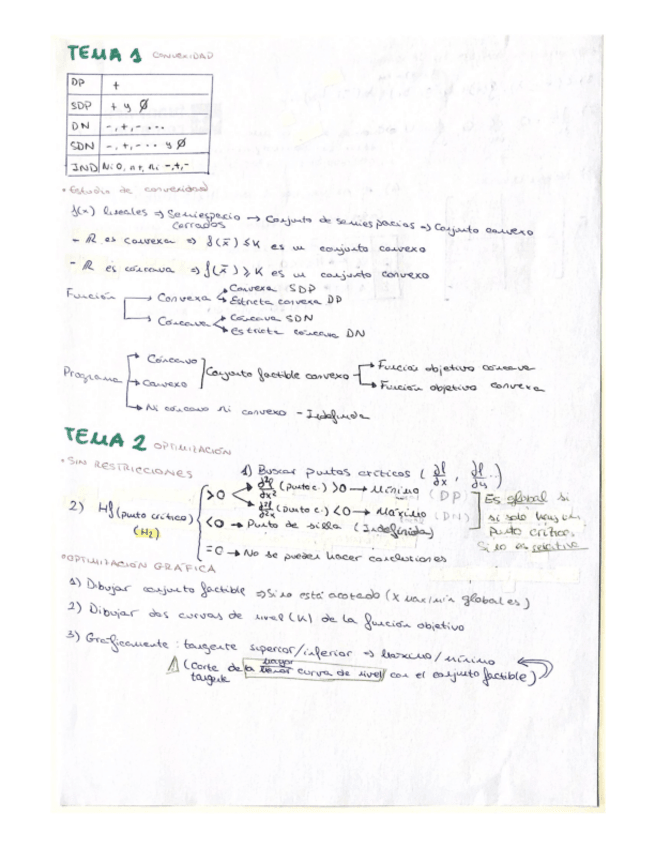 TEMA 1 CONVEXIDAD
DP +
SDP + y Ø
DN -, +, - ...
SDN -, +, - ·· y Ø
IND Ni 0, ni +, ni -, +, -
• Estudio de convexidad
f(x) lineales ⇒ Semiespacio → Conjunto de semiespacios ⇒ Conjunto convexo
cerrados
- R es convexa ⇒ f(x̄) ≤ K es un conjunto convexo
- R es cóncava ⇒ f(x̄) ≥ K es un conjunto convexo
Función → Convexa → Convexa SDP
→ Estricta convexa DP
→ Cóncava → Cóncava SDN
→ Estricta cóncava DN
Programa → Cóncavo
→ Convexo ] Conjunto factible convexo → Función objetivo cóncava
→ Función objetivo convexa
→ Ni cóncavo ni convexo - Indefinida
TEMA 2 OPTIMIZACIÓN
• SIN RESTRICCIONES
1) Buscar puntos críticos (∂f/∂x, ∂f/∂y ..)
2) Hf (punto crítico)
(H₂)
>0 → ∂²f/∂x² (punto c.) >0 → Mínimo (DP)
→ ∂²f/∂²x (punto c.) <0 → Máximo (DN)
<0 → Punto de silla (Indefinida)
=0 → No se pueden hacer conclusiones
Es global si
si solo hay un
punto crítico
Si no es relativo
• OPTIMIZACIÓN GRÁFICA
1) Dibujar conjunto factible ⇒ Si no está acotado (X max/min globales)
2) Dibujar dos curvas de nivel (K) de la función objetivo
3) Gráficamente: tangente superior/inferior ⇒ Máximo/Mínimo
(Corte de la mayor curva de nivel con el conjunto factible)
tangente menor